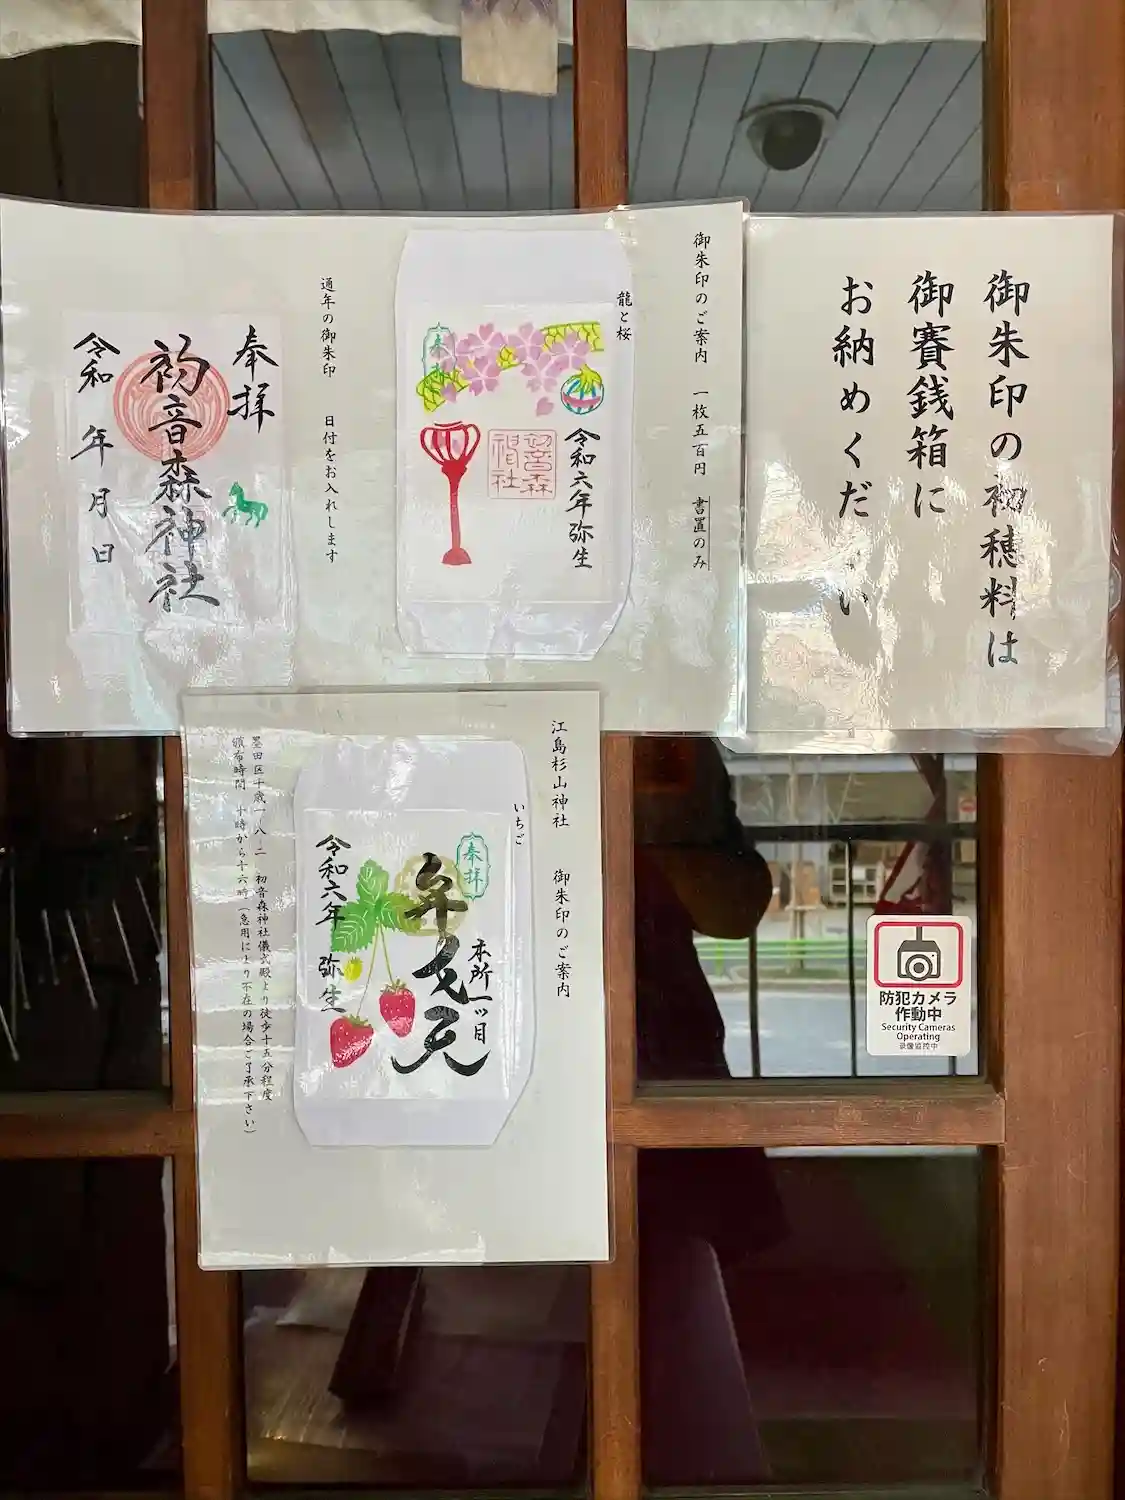 御朱印の初穂料は
御賽銭箱に
お納めください
御朱印のご案内 一枚五百円 書置のみ
龍と桜
奉拝
令和六年弥生
初音森神社
通年の御朱印 日付をお入れします
奉拝
初音森神社
令和 年 月 日
江島杉山神社 御朱印のご案内
いちご
奉拝
本所一ツ目
弁天
令和六年 弥生
墨田区千歳一ー八ー二 初音森神社儀式殿より徒歩十五分程度
頒布時間 十時から十六時(急用により不在の場合ご了承下さい)
防犯カメラ
作動中
Security Cameras
Operating
录像监控中